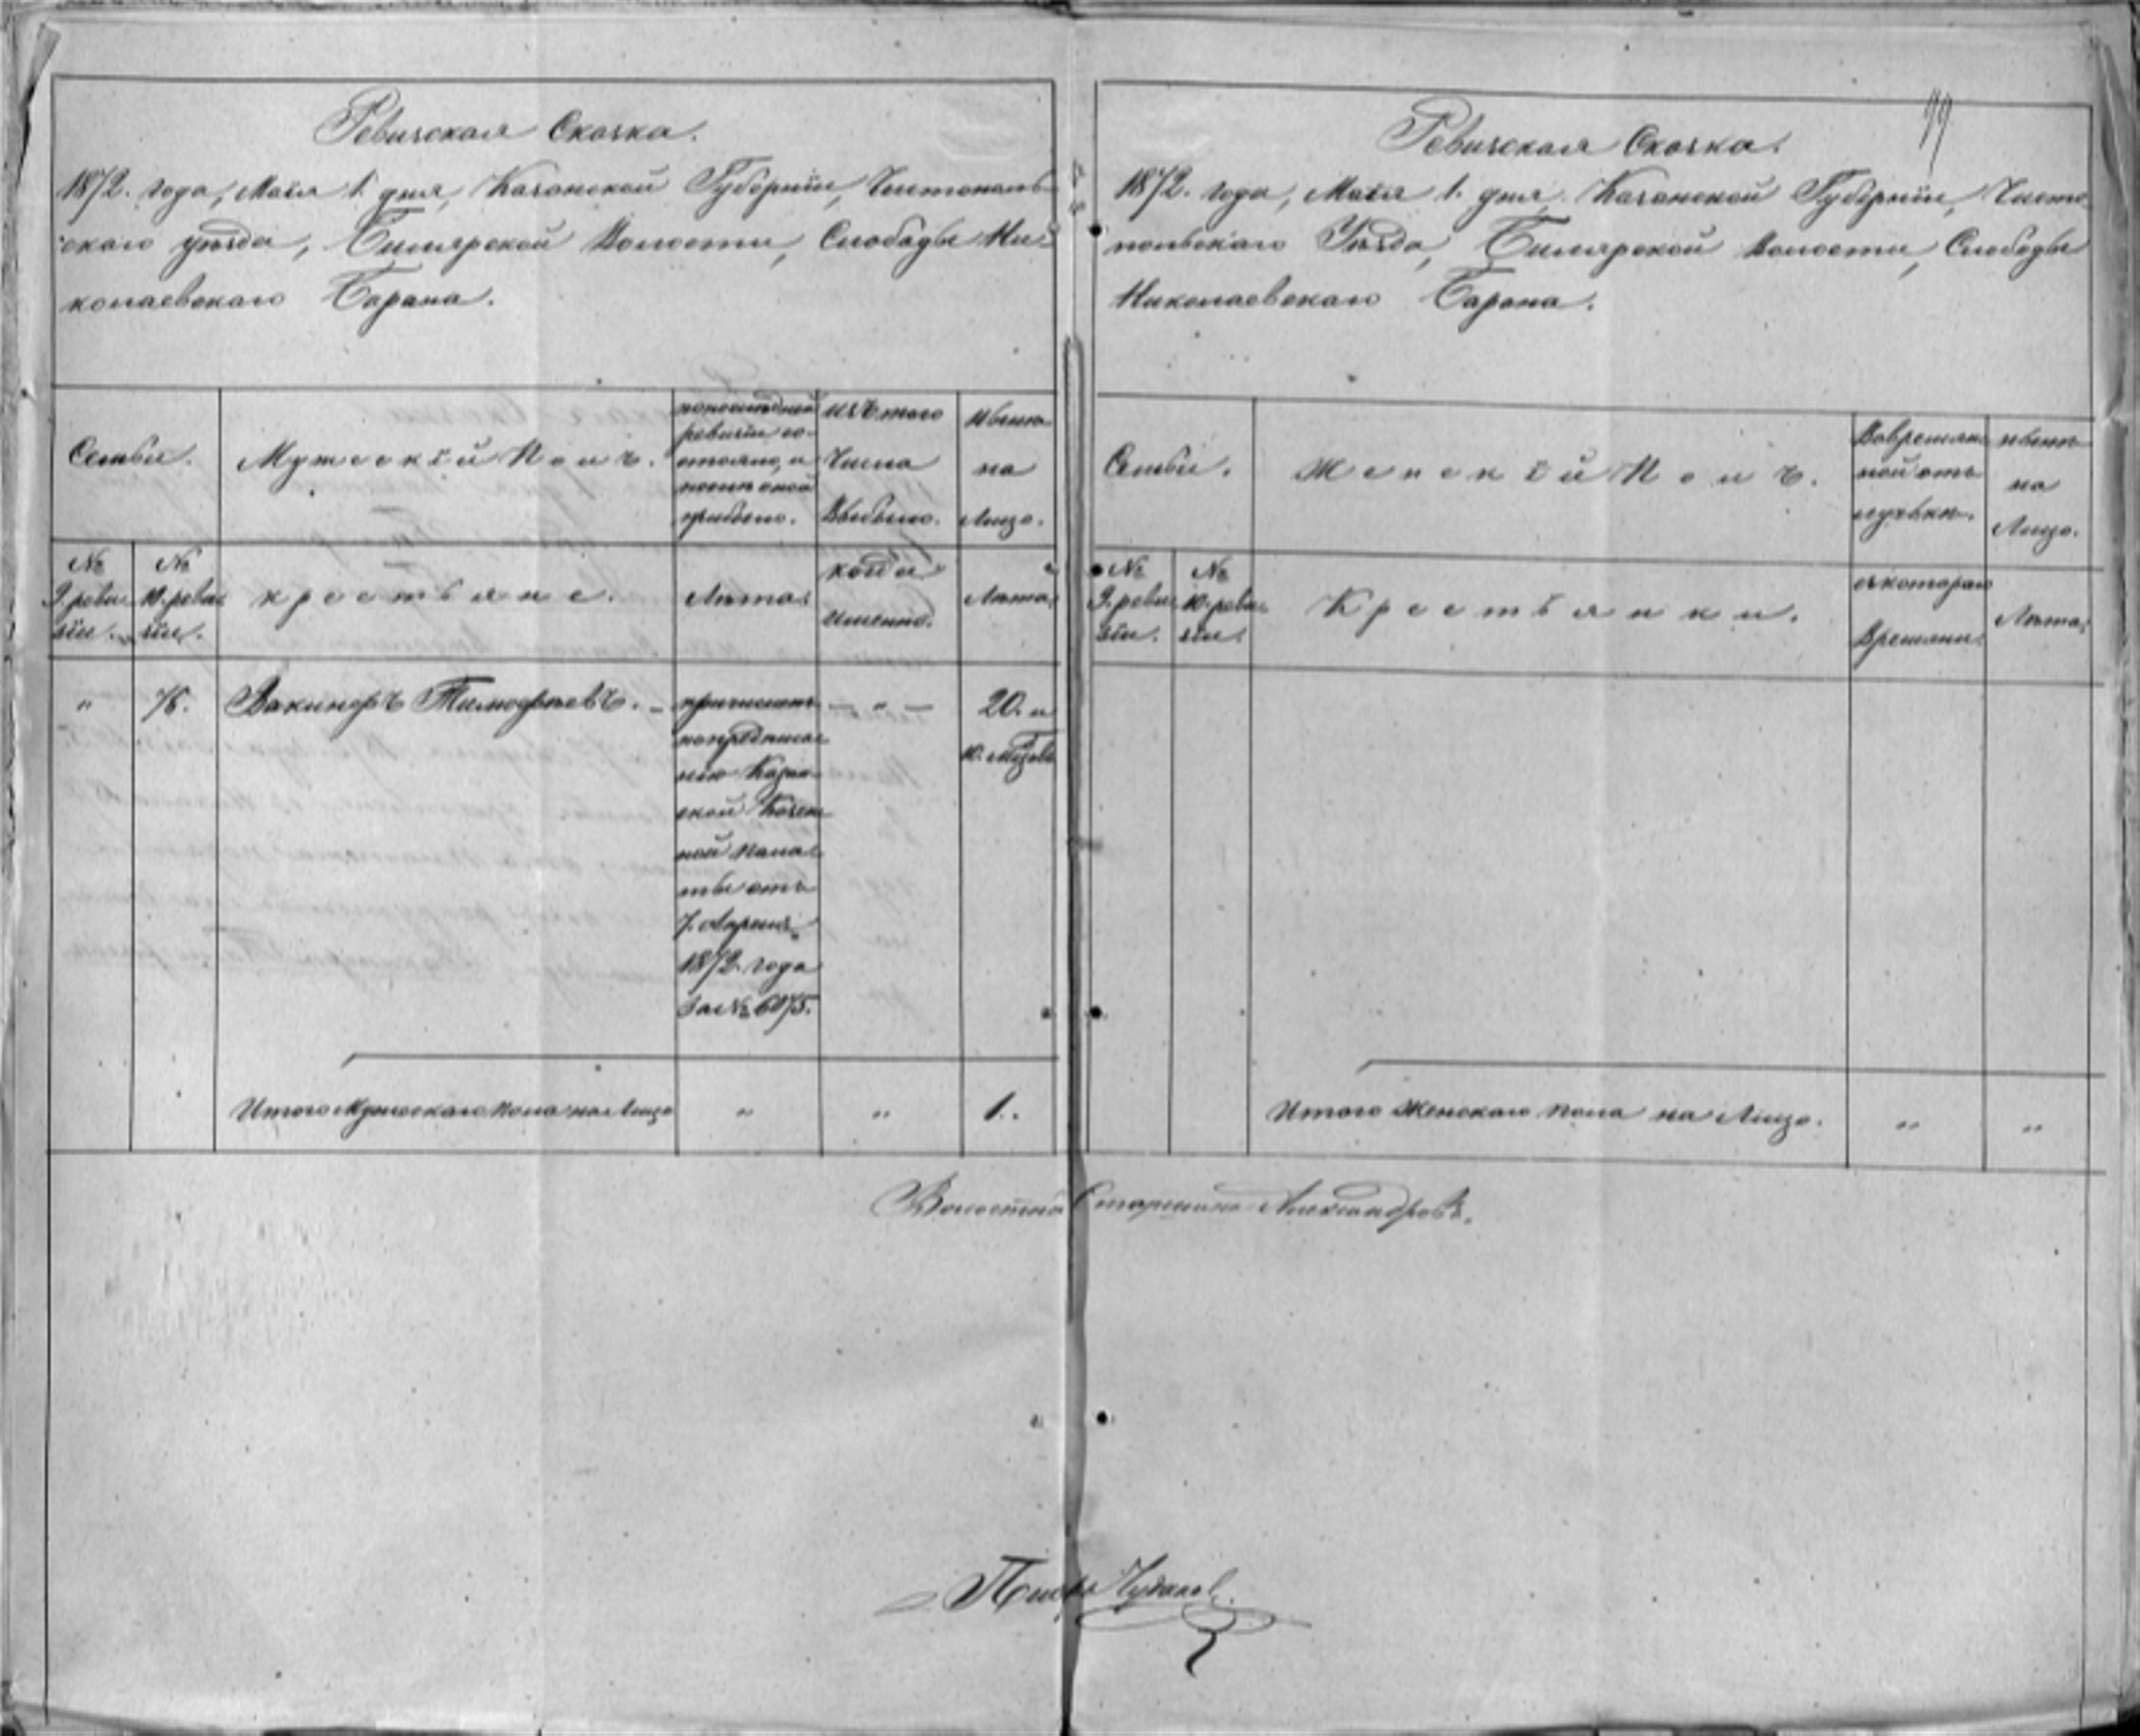 Ревизская Сказка.
1872. года, Маія 1. дня, Казанской Губерніи, Чистополь-
скаго уѣзда, Билярской Волости, Слободы Ни-
колаевскаго Барана.
Семьи.
Мужескій Полъ.
по последней
ревизіи со-
стояло, и
после оной
прибыло.
изъ того
Числа
Выбыло.
Ныне
на
Лицо.
№
9. реви
зіи.
№
10. реви
зіи.
крестьяне.
Лета
когда
именно.
Лета
"
76.
Вакинеръ Тимофеевъ. -
причислен
по предписа
нію Казан
ской Казен
ной Пала
ты отъ
7. Апреля
1872. года
За № 6075.
— " —
20. и
10. месяцовъ
Итого Мужескаго пола на Лицо
"
"
1.
Ревизская Сказка.
79
1872. года, Маія 1. дня. Казанской Губерніи, Чисто
польскаго Уѣзда, Билярской Волости, Слободы
Николаевскаго Барана.
Семьи.
Женскій Полъ.
Вовремян
ной отъ
лучьке.
ныне
на
Лицо.
№
9. реви
зіи.
№
10. реви
зіи.
Крестьянки.
съ котораго
Времяни.
Лета
Итого Женскаго пола на Лицо.
"
"
Волостной Старшина Александровъ.
Писарь Чудаков